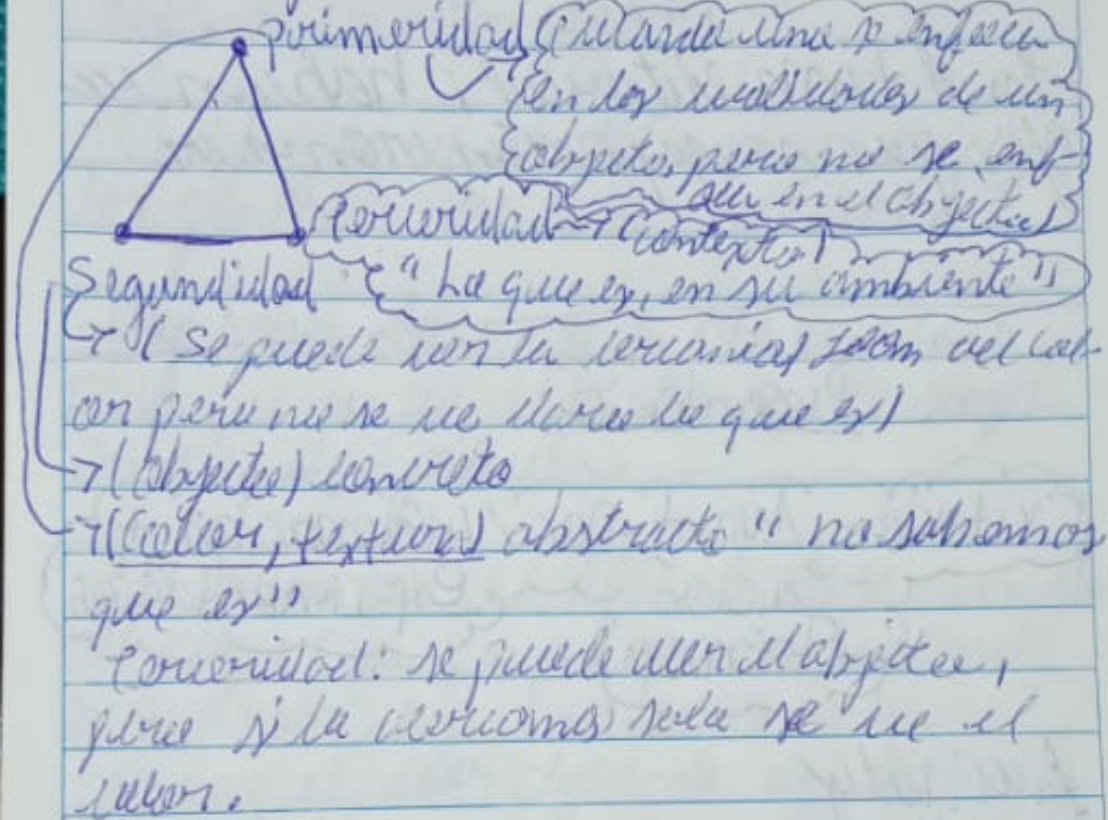 primeridad (cuando uno se enfoca
en las cualidades de un
objeto, pero no se enf-
oca en el objeto)
Terceridad → (contexto)
Segundidad "Lo que es, en su ambiente"
→ (se puede ver la cercanía) zoom del col-
or pero no se ve claro lo que es)
→ (objeto) concreto
→ (Color, textura) abstracto "no sabemos
que es"
Terceridad: se puede ver el objeto,
pero si la cercamos solo se ve el
color.